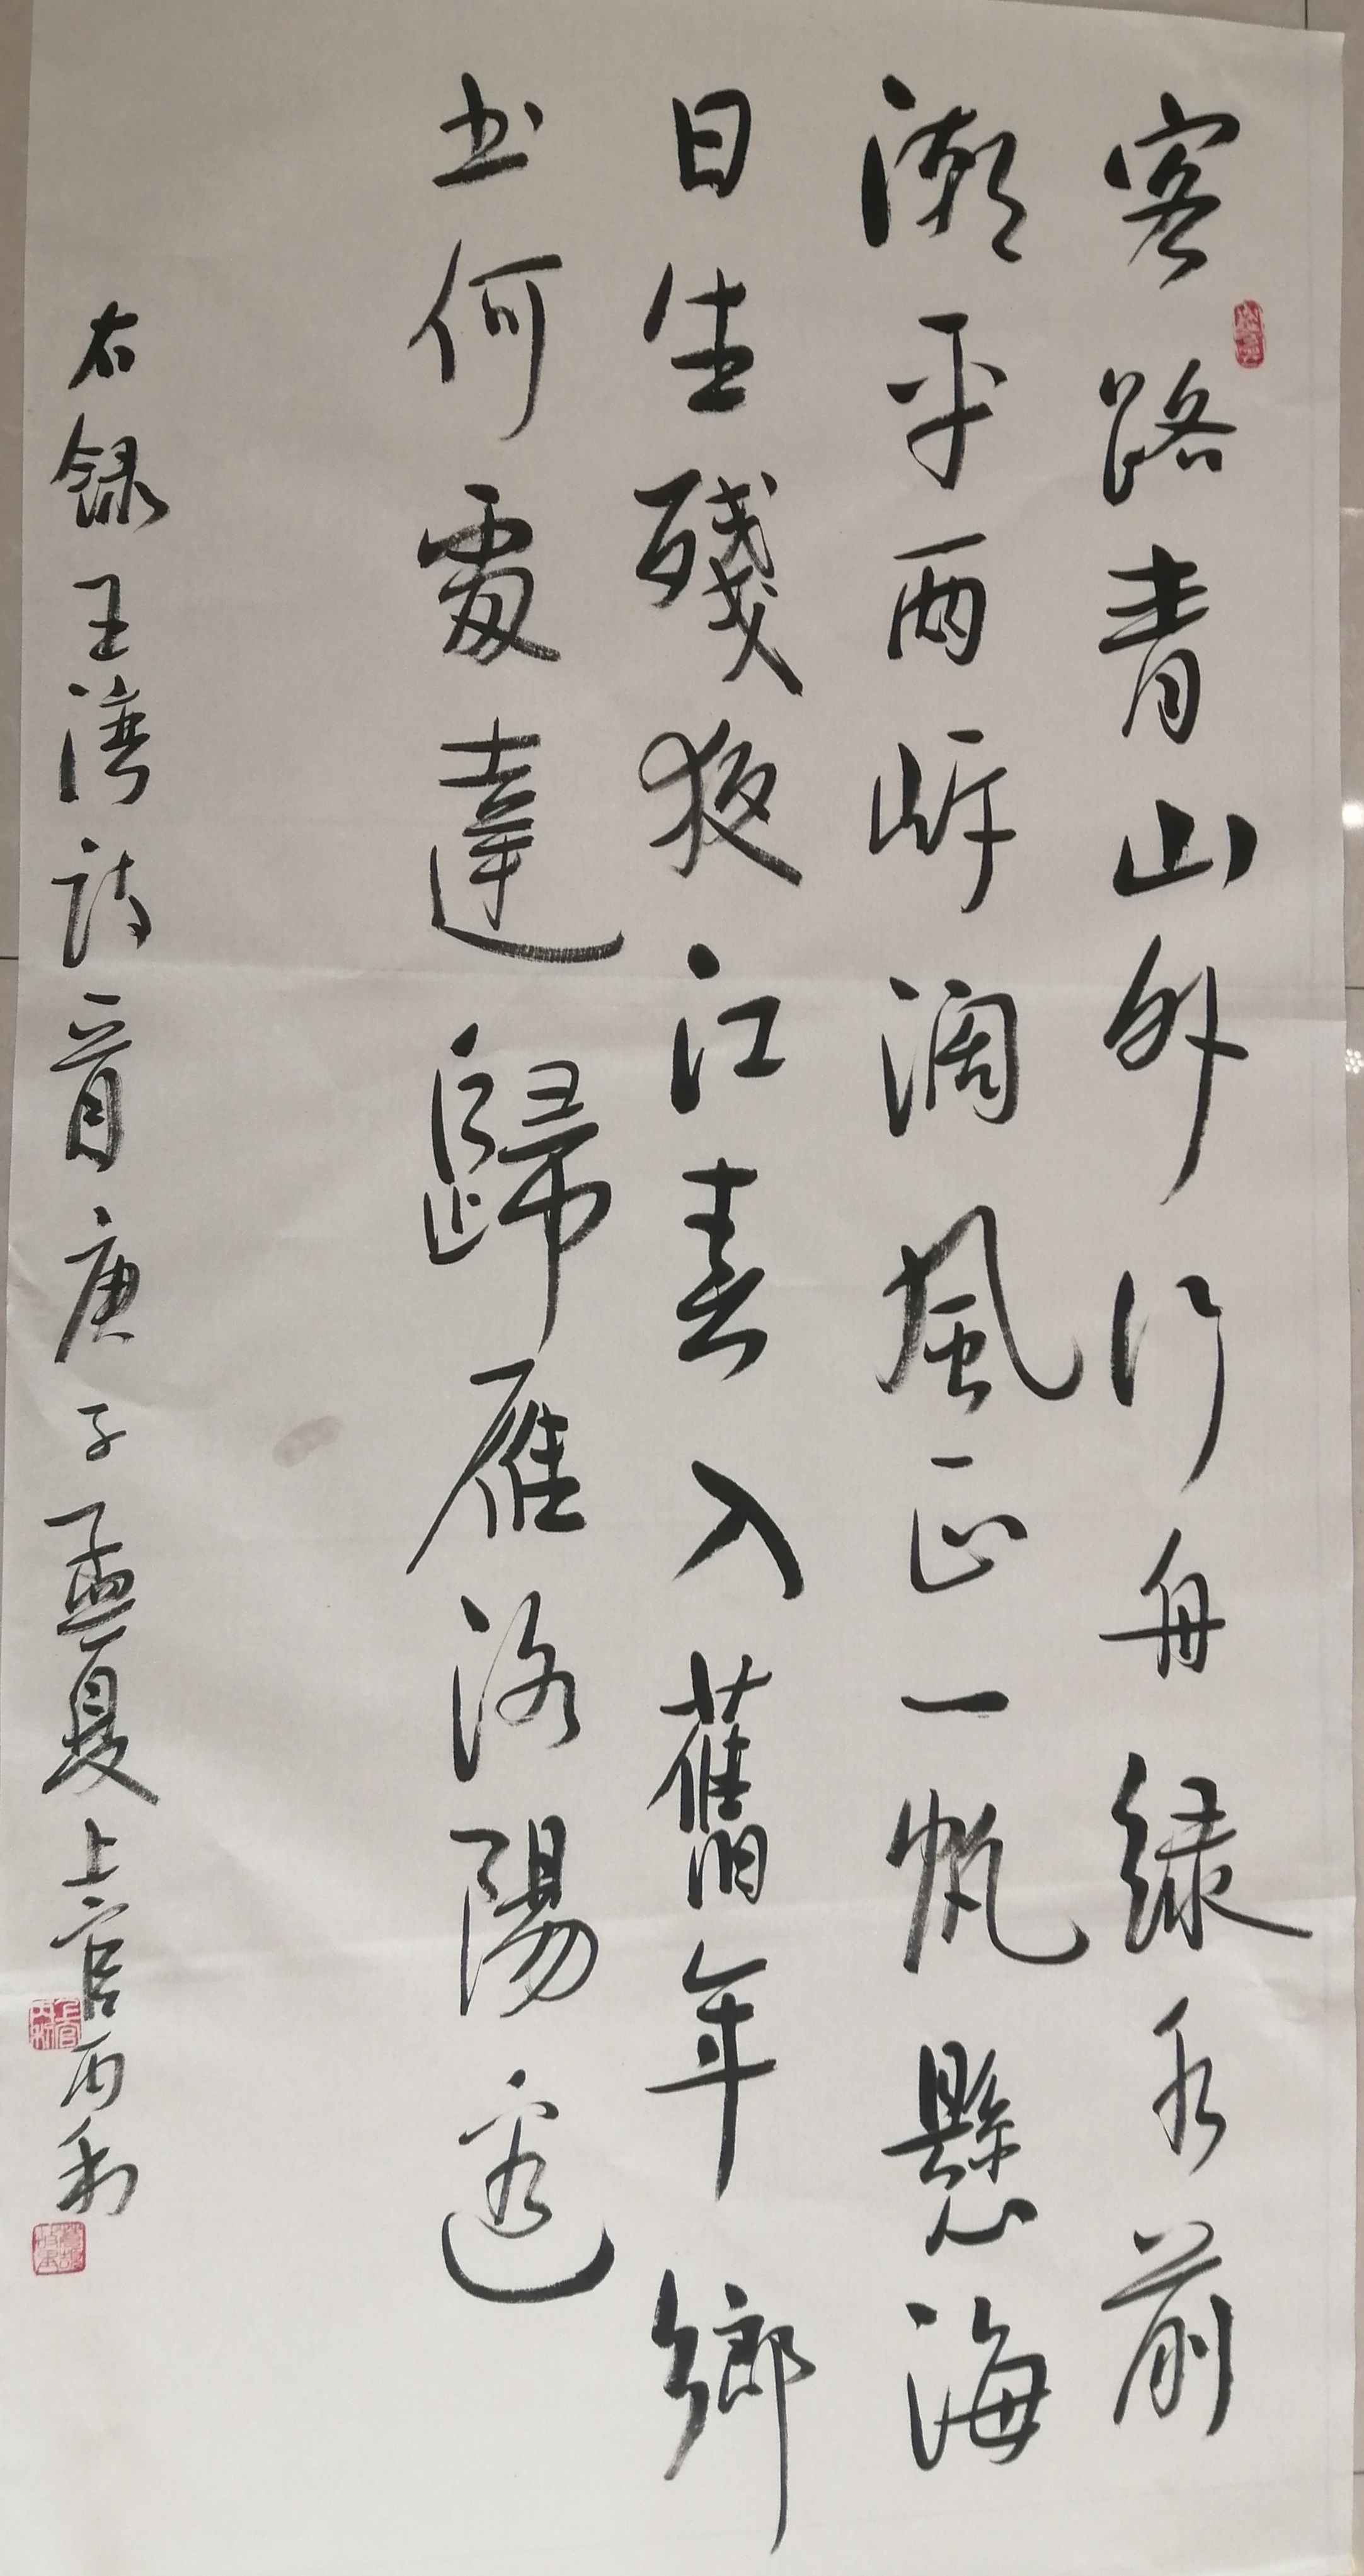 客路青山外行舟緑水前
潮平两岸濶風正一帆懸海
日生殘夜江春入舊年鄉
书何處達歸雁洛陽邊
右録王湾詩一首庚子孟夏上官丙利
上官丙利